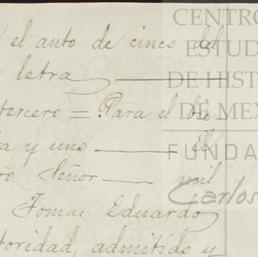 el auto de cinco del
letra
tercero = Para el
a y uno
Señor mil
Tomas Eduardo
toridad, admitido y
CENTRO
ESTUD
DE HIST
DE MEX
FUNDA
Carlos